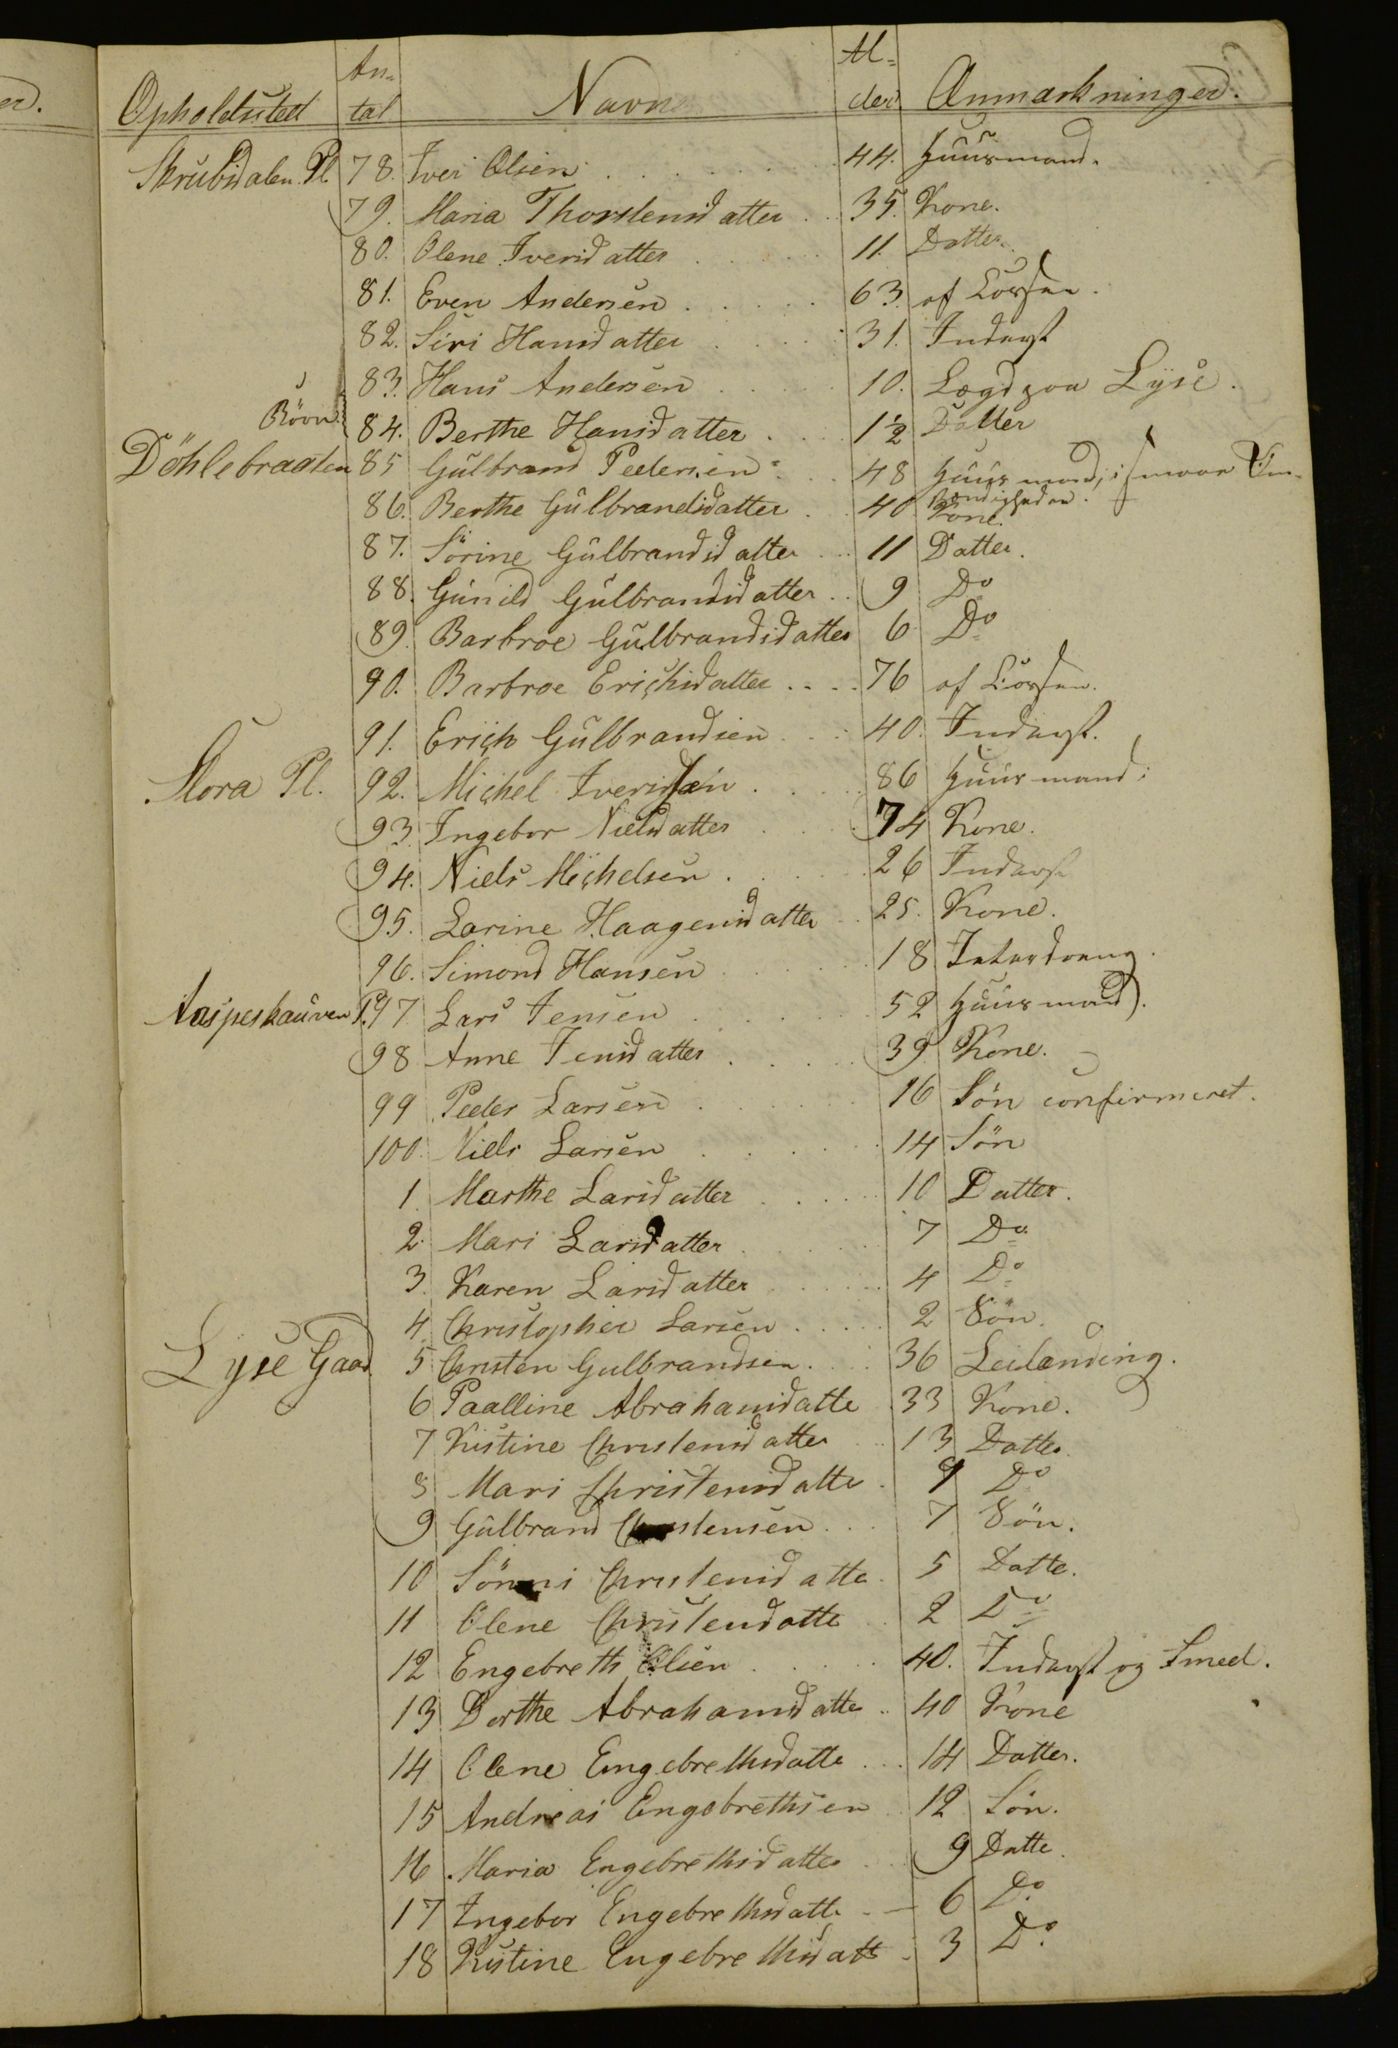 Opholdsted An- tal Navne Al- der Anmærkninger.
Skrubsdalen Pl. 78. Iver Olsen 44. Huusmand.
79. Maria Thorstensdatter 35. Kone.
80. Olene Iversdatter 11. Datter.
81. Even Andersen 63. af Lossen.
82. Siri Hansdatter 31. Inderst
83. Hans Andersen 10. Lægd paa Lyse.
Börn 84. Berthe Hansdatter 1½ Datter
Döhlebraaten 85 Gulbrand Pedersen 48 Huusmand, i smaae Om-
stændigheder.
86. Berthe Gulbrandsdatter 40 Kone.
87. Sörine Gulbrandsdatter 11 Datter.
88. Gunild Gulbrandsdatter 9 Do
89. Barbroe Gulbrandsdatter 6 Do
90. Barbroe Erichsdatter 76 af Lossen.
91. Erich Gulbrandsen 40. Inderst.
Mora Pl. 92. Michel Iversen 86 Huusmand.
93. Ingebor Nielsdatter 74 Kone.
94. Niels Michelsen 26 Inderst
95. Larine Haagensdatter 25. Kone.
96. Simond Hansen 18 Faterdreng.
Aaspeshauven P. 97 Lars Jensen 52 Huusmand.
98 Anne Jensdatter 39 Kone.
99 Peder Larsen 16 Sön confirmeret.
100. Niels Larsen 14 Sön
1. Marthe Larsdatter 10 Datter.
2. Mari Larsdatter 7 Do
3. Karen Larsdatter 4 Do
4. Christopher Larsen 2 Sön.
Lyse Gaad 5 Christen Gulbrandsen 36 Leilænding.
6 Paalline Abrahamsdatte 33 Kone.
7 Kistine Christensdatter 13 Datter.
8 Mari Christensdatte 9 Do
9 Gulbrand Christensen 7 Sön.
10 Sönni Christensdatte 5 Datte.
11 Olene Christensdatte 2 Do
12 Engebreth Olsen 40. Inderst og Smed.
13 Dorthe Abrahamsdatte 40 Kone
14 Olene Engebrethsdatte 14 Datter.
15 Andreas Engebrethsen 12 Sön.
16 Maria Engebrethsdatter 9 Datte.
17 Ingebor Engebrethsdatte 6 Do
18 Kistine Engebrethsdatt 3 Do